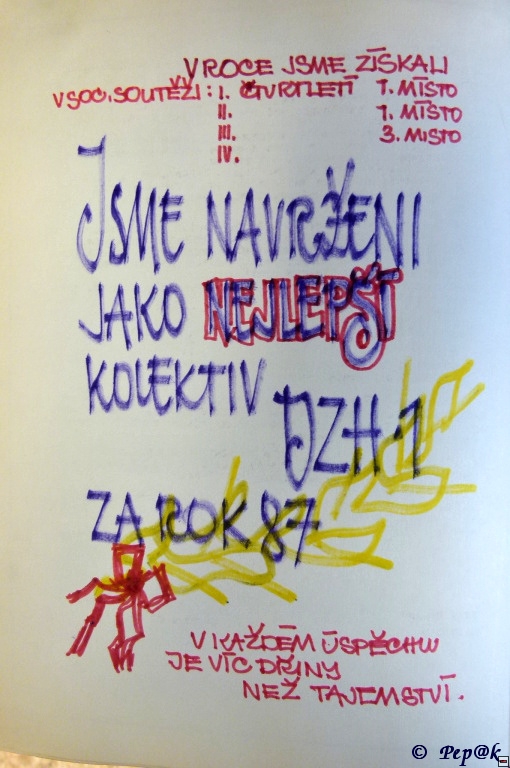 V ROCE JSME ZÍSKALI
V SOC. SOUTĚŽI : I. ČTVRTLETÍ 1. MÍSTO
II. 1. MÍSTO
III. 3. MISTO
IV.
JSME NAVRŽENI
JAKO NEJLEPŠÍ
KOLEKTIV
DZH-1
ZA ROK 87
V KAŽDÉM ÚSPĚCHU
JE VÍC DŘINY
NEŽ TAJEMSTVÍ.
© Pep@k